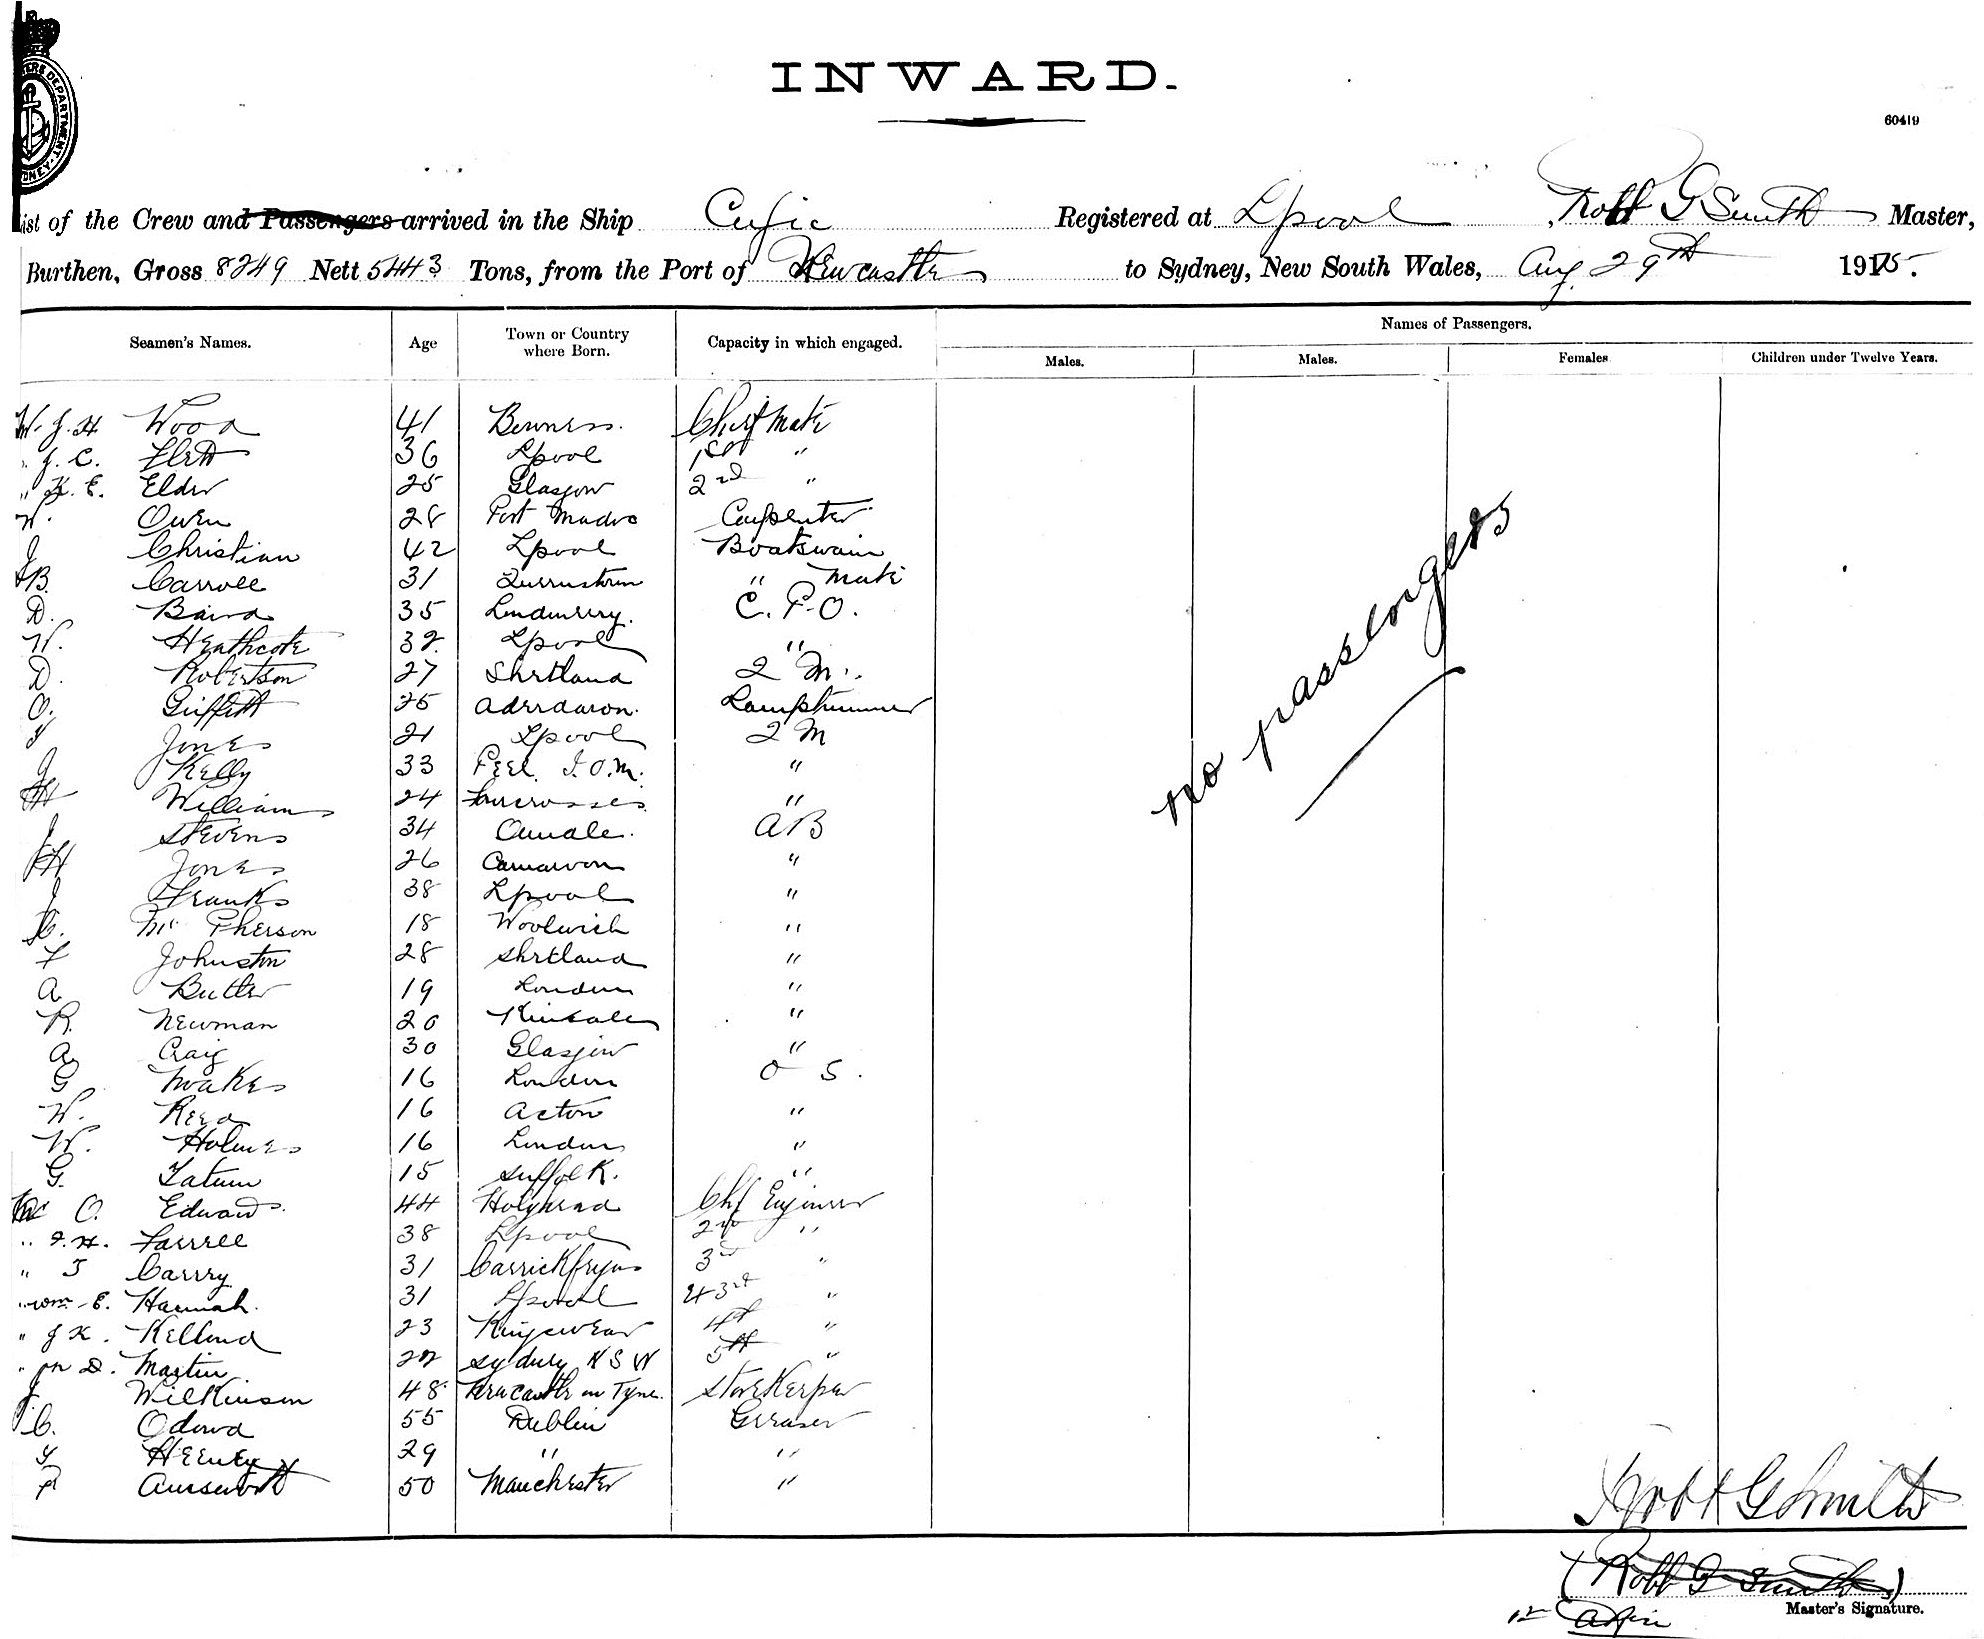 INWARD.
60419
ist of the Crew and Passengers arrived in the Ship Cufic Registered at Lpool Robt G Smith Master,
Burthen, Gross 8249 Nett 5443 Tons, from the Port of Newcastle to Sydney, New South Wales, Aug 29th 1915.
Names of Passengers.
Seamen's Names. Age Town or Country where Born. Capacity in which engaged. Males. Males. Females Children under Twelve Years.
W. J. H Wood 41 Bowness. Chief Mate
J. C. Flett 36 Lpool 1st "
" H. E. Elder 25 Glasgow 2nd "
W. Owen 28 Port Madoc Carpenter
J Christian 42 Lpool Boatswain
B. Carroll 31 " Mate
D. Baird 35 Londonderry. C. P. O.
W. Heathcote 32 Lpool "
D. Robertson 27 Shetland 2 M.
O. Griffith 25 Aderdaron. Lamptrimmer
Jones 21 Lpool 2 M
J Kelly 33 Peel. I.O.M. "
H Williams 24 Fourcrosses "
J Stevens 34 AB
H Jones 26 Carnarvon "
J Franks 38 Lpool "
Mc Pherson 18 Woolwich "
F Johnston 28 Shetland "
A Butler 19 London "
R. Newman 20 Kinsale "
A Craig 30 Glasgow "
G Noakes 16 London O S.
W. Reed 16 Acton "
W. Holmes 16 London "
G. Tatum 15 Suffolk. "
O. Edwards. 44 Holyhead Chf Engineer
" Farrell 38 Lpool 2nd "
" J Carrey 31 Carrickfergus 3rd "
" Wm E. Hannah. 31 Lpool 3rd "
" J K. Kelland 23 Kingswear 4th "
" D. Martin 22 Sydney N S W 5th "
J. Wilkinson 48 Newcastle on Tyne. Storekeeper
C. Odowd 55 Dublin Greaser
Heeney 29 " "
50 Manchester "
no passengers
Robt G Smith
(Robt G Smith)
Master's Signature.